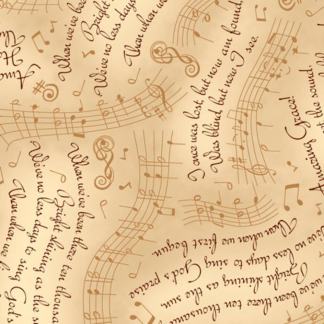 When we've been
Bright
We've no less days
Then when we
I once was lost, but now am found,
Was blind but now I see.
Amazing Grace!
the sound
When we've been there ten thousand
Bright shining as the
We've no less days to sing God's
Then when we
we've been there ten thousand
Bright shining as the sun.
no less days to sing God's praise
Then when we first begun.